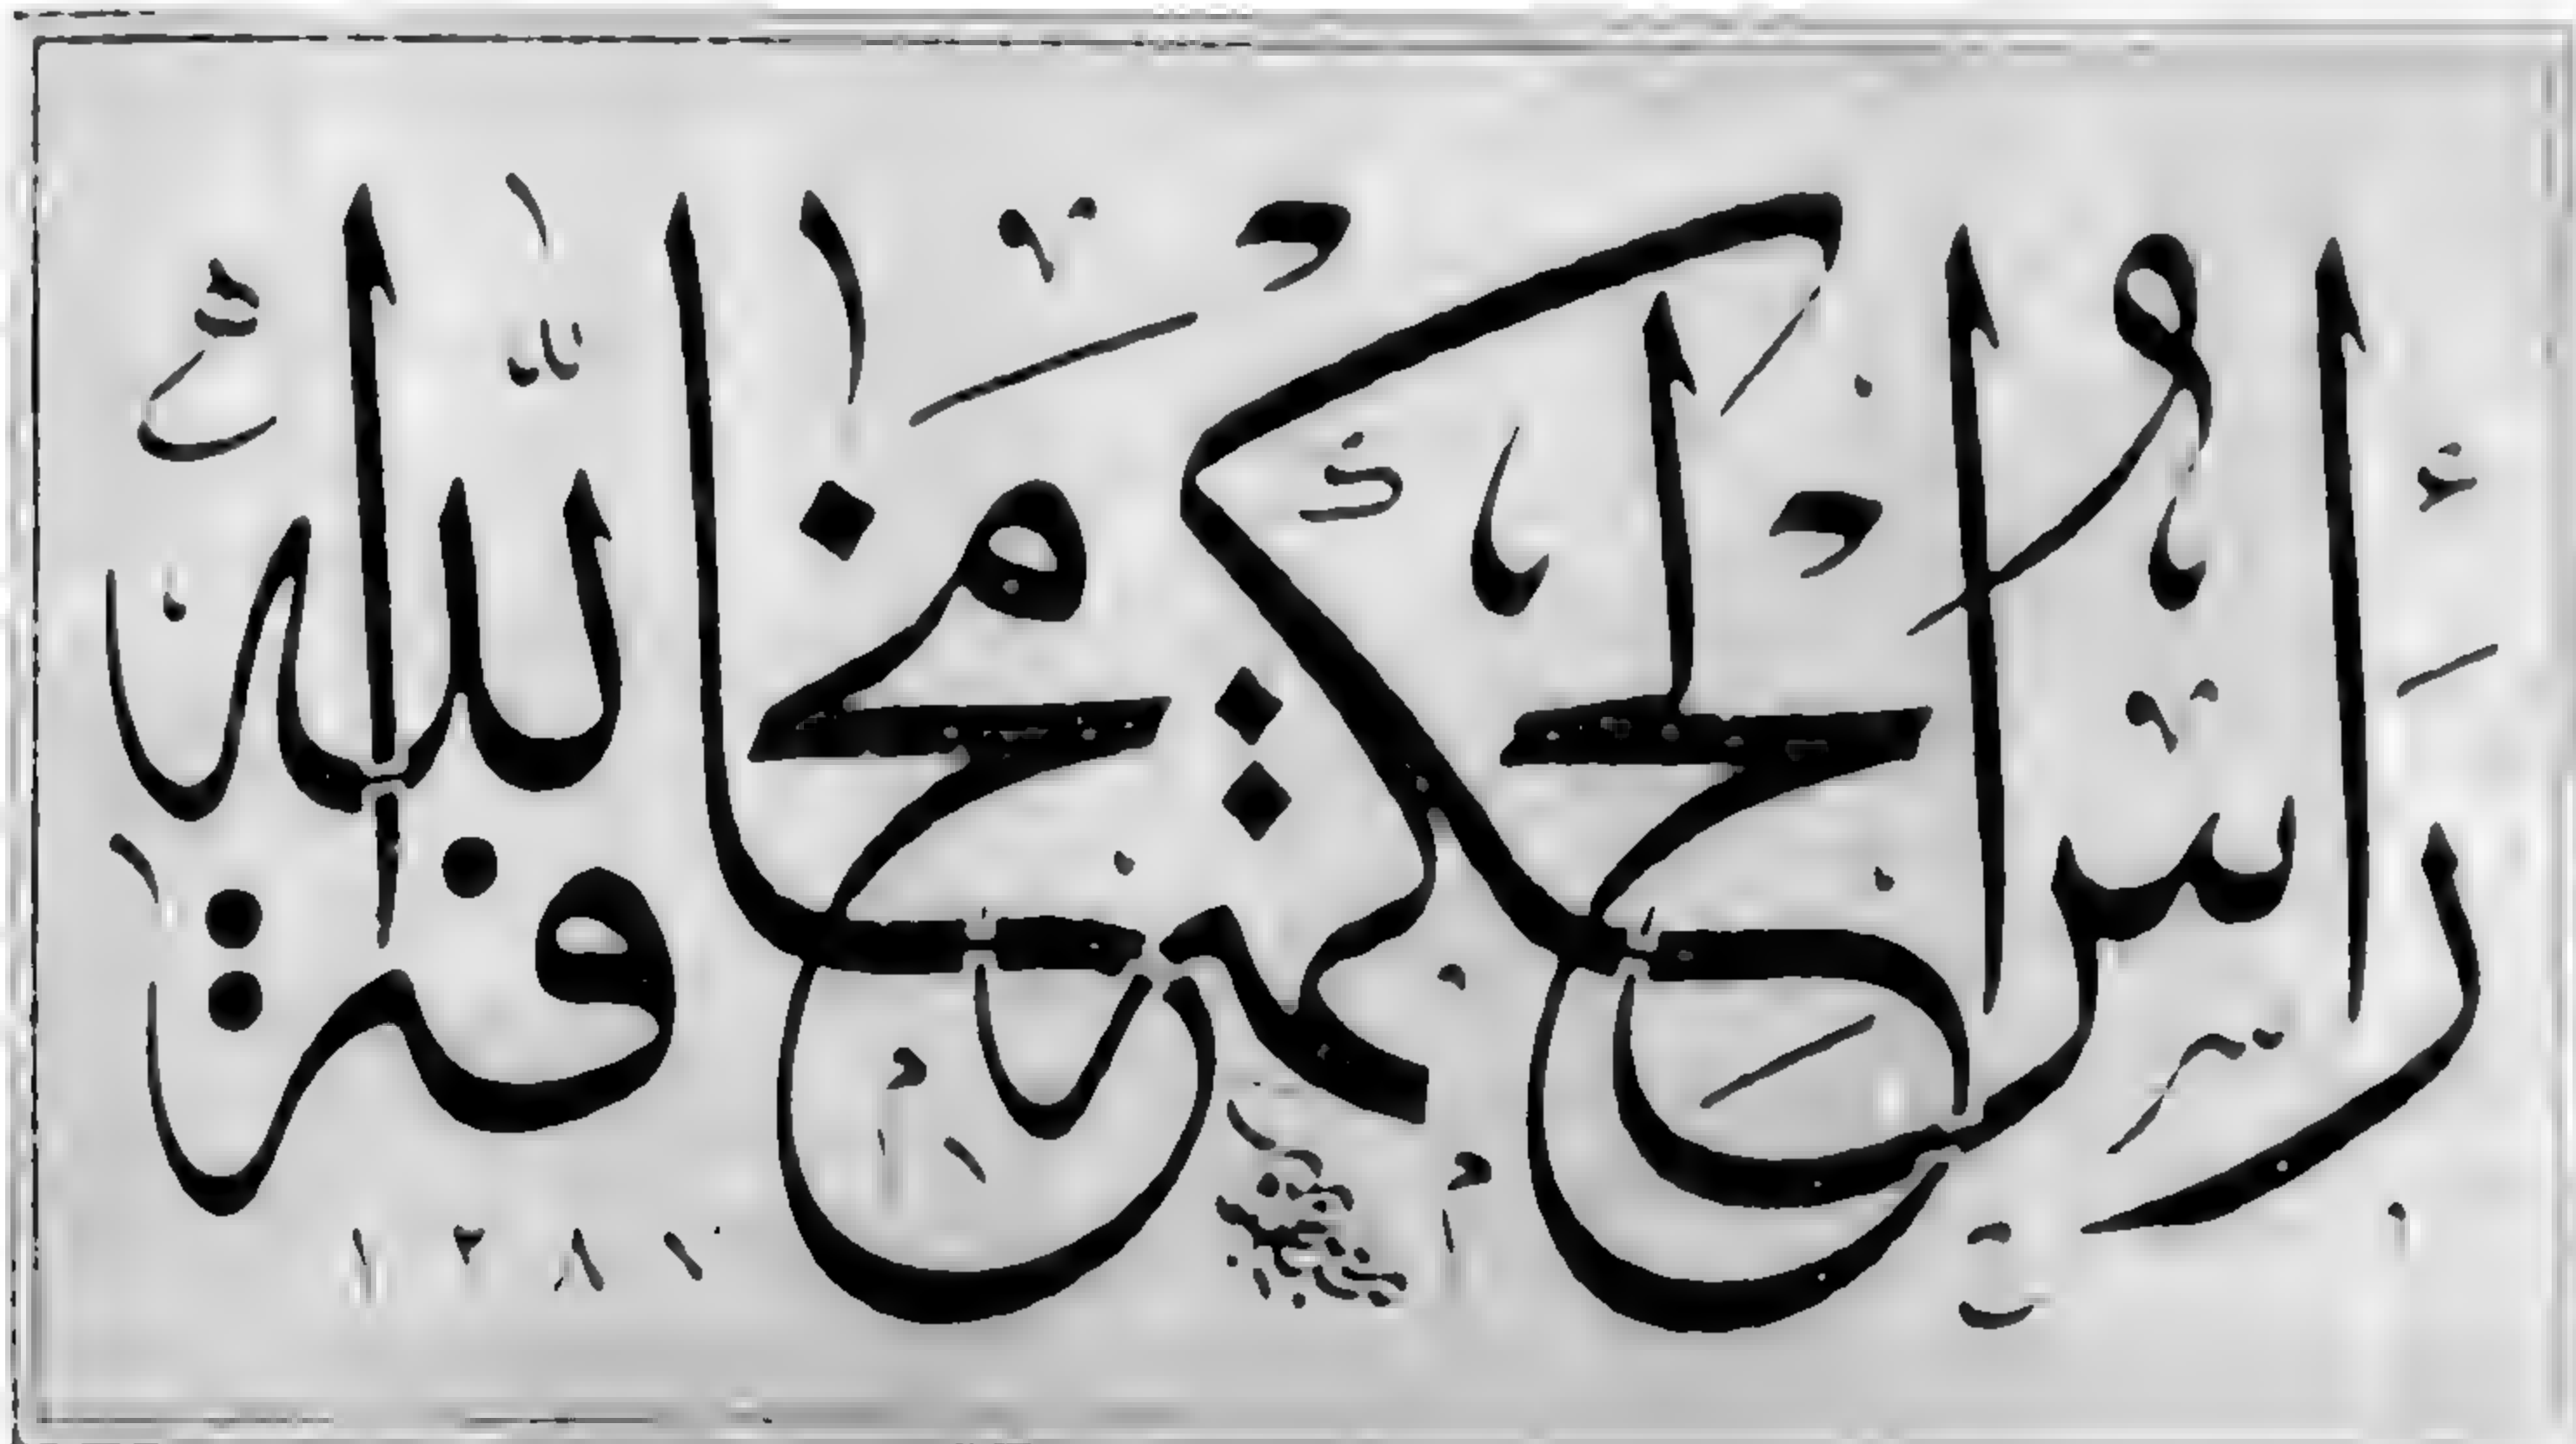 رَأْسُ الْحِكْمَةِ مَخَافَةُ اللّٰهِ
١٢٨١